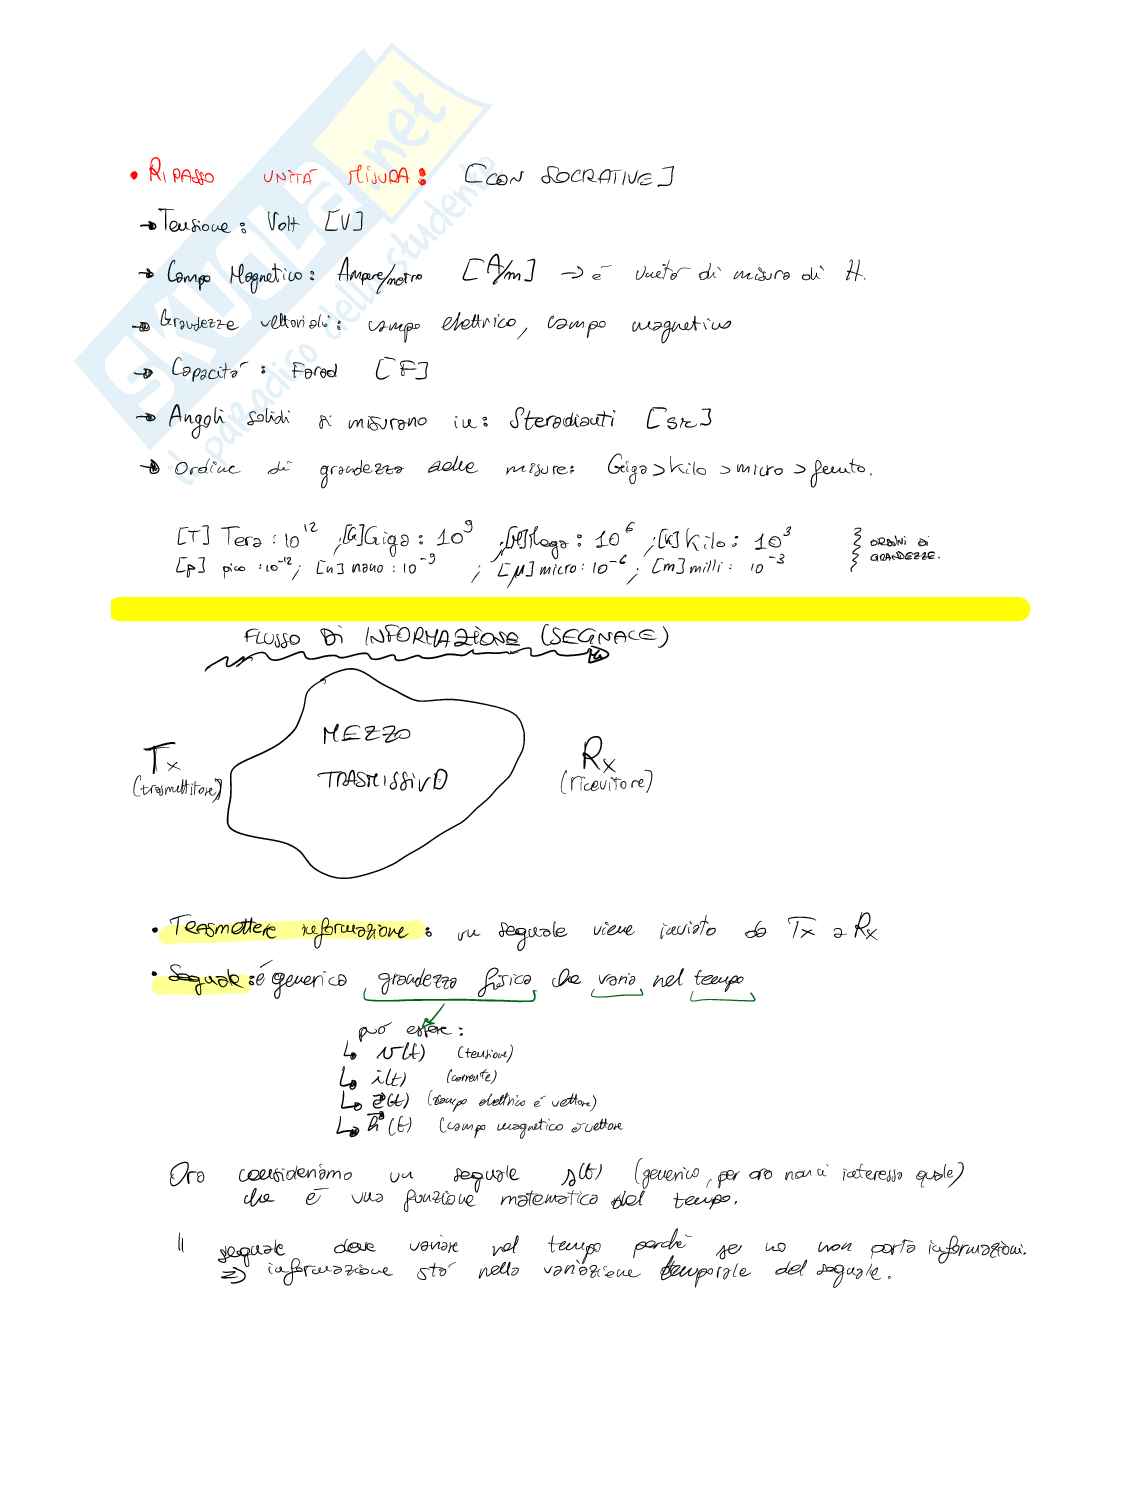 • RIPASSO UNITÁ MISURA: [CON SOCRATIVE]
→ Tensione: Volt [V]
→ Campo Magnetico: Ampere/metro [A/m] → é unità di misura di H.
→ Grandezze vettoriali: campo elettrico, campo magnetico
→ Capacitá: Farad [F]
→ Angoli solidi si misurano in: Steradianti [sr]
→ Ordine di grandezza delle misure: Giga > Kilo > micro > femto.
[T] Tera: 10^12 ; [G] Giga: 10^9 ; [M] Mega: 10^6 ; [K] Kilo: 10^3 } ORDINI DI GRANDEZZE.
[p] pico: 10^-12; [n] nano: 10^-9 ; [μ] micro: 10^-6; [m] milli: 10^-3
FLUSSO DI INFORMAZIONE (SEGNALE)
MEZZO
TRASMISSIVO
Tx
(trasmettitore)
Rx
(ricevitore)
• Trasmettere informazione: un segnale viene inviato da Tx a Rx
• Segnale: é generica grandezza fisica che varia nel tempo
può essere:
↳ v(t) (tensione)
↳ i(t) (corrente)
↳ e(t) (campo elettrico é vettore)
↳ h(t) (campo magnetico è vettore
Ora consideriamo un segnale s(t) (generico, per ora non ci interessa quale)
che é una funzione matematica del tempo.
Il segnale deve variare nel tempo perché se no non porta informazioni.
⇒ informazione stá nella variazione temporale del segnale.
SKUOLA.net
il paradiso dello studente